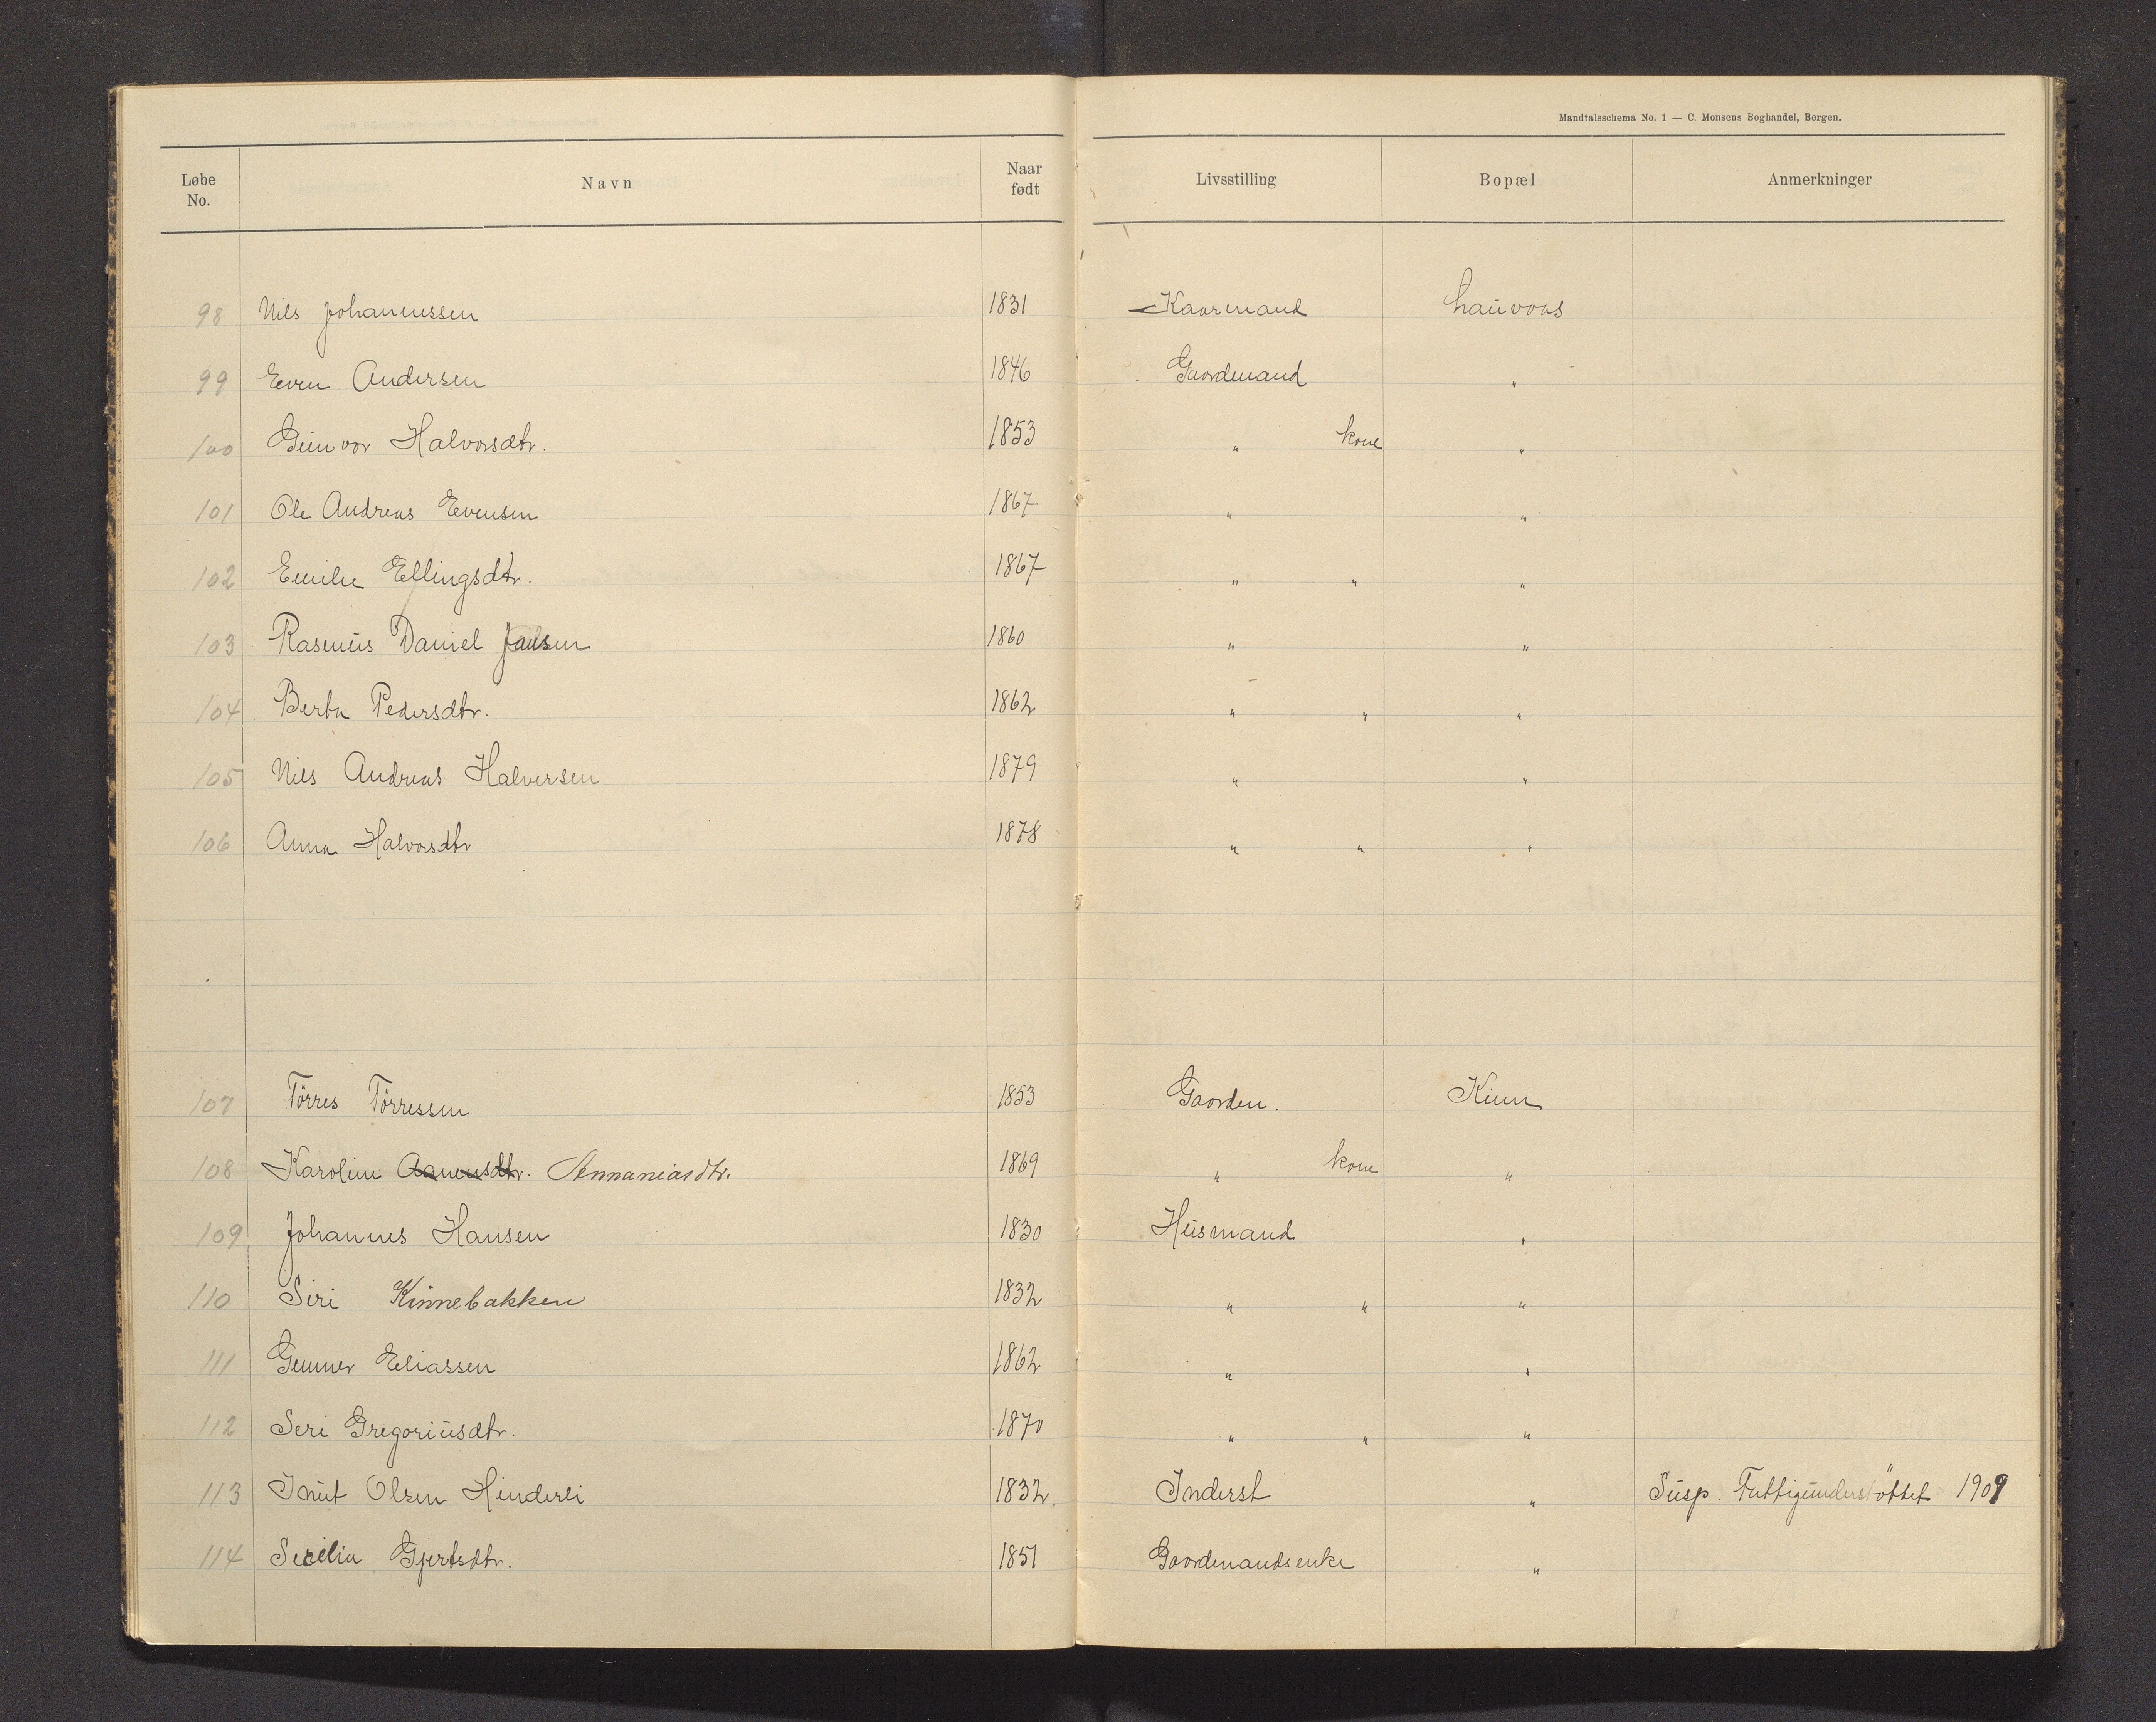 Mandtalsschema No. 1 — C. Monsens Boghandel, Bergen.
Løbe No. Navn Naar født Livsstilling Bopæl Anmerkninger
98 Nils Johannessen 1831 Kaarmand
99 Even Andersen 1846 Gaardmand "
100 Gunvor Halvorsdtr. 1853 " kone "
101 Ole Andreas Evensen 1867 " "
102 Emilie Ellingsdtr. 1867 " " "
103 Rasmus Daniel Jansen 1860 " "
104 Berta Pedersdtr. 1862 " " "
105 Nils Andreas Halversen 1879 " "
106 Anna Halvorsdtr 1878 " " "
107 Törres Törressen 1853 Gaarden. Kinn
108 Karoline Aanensdtr. Annaniasdtr. 1869 " kone "
109 Johannes Hansen 1830 Husmand "
110 Siri Kinnebakken 1832 " " "
111 Gunner Eliassen 1862 " "
112 Seri Gregoriusdtr. 1870 " " "
113 Olsen Hinderli 1832. Inderst " Susp. Fattigunderstöttet 1909
114 Secelia Gjertsdtr. 1851 Gaardmandsenke "